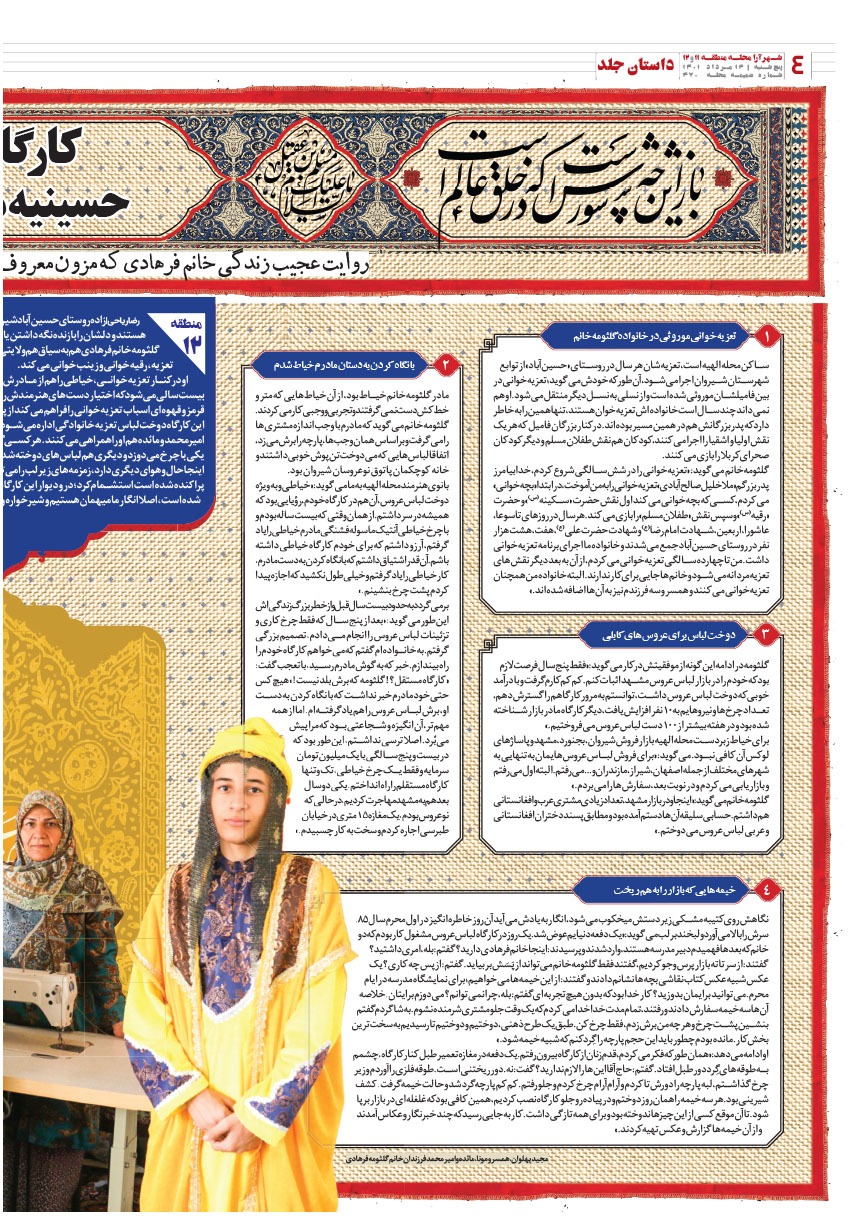 ٤
شهرآرا محله منطقه ۱۱ و ۱۲
پنج‌شنبه | ۱۳ مرداد ۱۴۰۱
شماره ضمیمه محله ۴۷۰
داستان جلد
باز این چه شورش است که در خلق عالم است
السلام علیک یا مسلم بن عقیل
کارگا
حسینیه
روایت عجیب زندگی خانم فرهادی که مزون معروف
منطقه
۱۲
رضا ریاحی | زاده روستای حسین آباد شیر
هستند و دلشان را با زنده نگه داشتن یا
گلثومه خانم فرهادی هم به سیاق هم ولایتی
تعزیه، رقیه خوانی و زینب خوانی می کند.
او در کنار تعزیه خوانی، خیاطی را هم از مادرش
بیست سالی می شود که اختیار دست های هنرمندش را
قرمز و قهوه ای اسباب تعزیه خوانی را فراهم می کند از
این کارگاه دوخت لباس تعزیه خانوادگی اداره می شود
امیرمحمد و مائده هم او را همراهی می کنند. هر کسی
یکی با چرخ می دوزد و دیگری هم لباس های دوخته شده
اینجا حال و هوای دیگری دارد، زمزمه های زیر لب رامی
پراکنده شده است استشمام کرد؛ در و دیوار این کارگاه
شده است، اصلا انگار ما میهمان هستیم و شیرخواره
۱
تعزیه خوانی موروثی در خانواده گلثومه خانم
ساکن محله الهیه است، تعزیه شان هر سال در روستای «حسین آباد» از توابع
شهرستان شیروان اجرا می شود. آن طور که خودش می گوید، تعزیه خوانی در
بین فامیلشان موروثی شده است و از نسلی به نسل دیگر منتقل می شود. او هم
نمی داند چند سال است خانواده اش تعزیه خوان هستند، تنها همین را به خاطر
دارد که پدربزرگانش هم در همین مسیر بوده اند. در کنار بزرگان فامیل که هر یک
نقش اولیا و اشقیا را اجرا می کنند، کودکان هم نقش طفلان مسلم و دیگر کودکان
صحرای کربلا را بازی می کنند.
گلثومه خانم می گوید: «تعزیه خوانی را در شش سالگی شروع کردم، خدا بیامرز
پدربزرگم، ملاخلیل صالح آبادی، تعزیه خوانی را به من آموخت. در ابتدا بچه خوانی،
می کردم، کسی که بچه خوانی می کند اول نقش حضرت «سکینه(س)» و حضرت
«رقیه(س)» و سپس نقش «طفلان مسلم» را بازی می کند. هر سال در روزهای تاسوعا،
عاشورا، اربعین، شهادت امام رضا(ع) و شهادت حضرت علی(ع)، هفت، هشت هزار
نفر در روستای حسین آباد جمع می شدند و خانواده ما اجرای برنامه تعزیه خوانی
داشت. من تا چهارده سالگی تعزیه خوانی می کردم، از آن به بعد دیگر نقش های
تعزیه مردانه می شود و خانم ها جایی برای کار ندارند. البته خانواده من همچنان
تعزیه خوانی می کنند و همسر و سه فرزندم نیز به آن ها اضافه شده اند.»
۲
با نگاه کردن به دستان مادرم خیاط شدم
مادر گلثومه خانم خیاط بود، از آن خیاط هایی که متر و
خط کش دست نمی گرفتند و تجربی و وجبی کار می کردند.
گلثومه خانم می گوید که مادرم با وجب اندازه مشتری ها
را می گرفت و بر اساس همان وجب ها، پارچه را برش می زد،
اتفاقا لباس هایی که می دوخت تن پوش خوبی داشتند و
خانه کوچکمان پاتوق نوعروسان شیروان بود.
بانوی هنرمند محله الهیه به ما می گوید: «خیاطی و به ویژه
دوخت لباس عروس، آن هم در کارگاه خودم، رؤیایی بود که
همیشه در سر داشتم. از همان وقتی که بیست ساله بودم و
با چرخ خیاطی آنتیک ماسوله فشنگی مادرم خیاطی را یاد
گرفتم، آرزو داشتم که برای خودم کارگاه خیاطی داشته
باشم. آن قدر اشتیاق داشتم که با نگاه کردن به دست مادرم،
کار خیاطی را یاد گرفتم و خیلی طول نکشید که اجازه پیدا
کردم پشت چرخ بنشینم.»
بر می گردد به حدود بیست سال قبل و از خطر بزرگ زندگی اش
این طور می گوید: «بعد از پنج سال که فقط چرخ کاری و
تزئینات لباس عروس را انجام می دادم، تصمیم بزرگی
گرفتم. به خانواده ام گفتم که می خواهم کارگاه خودم را
راه بیندازم. خبر که به گوش مادرم رسید، با تعجب گفت:
«کارگاه مستقل؟! گلثومه که برش بلد نیست!» هیچ کس
حتی خود مادرم خبر نداشت که با نگاه کردن به دست
او، برش لباس عروس را هم یاد گرفته ام. اما از همه
مهم تر، آن انگیزه و شجاعتی بود که مرا پیش
می بُرد. اصلا ترسی نداشتم. این طور بود که
در بیست و پنج سالگی با یک میلیون تومان
سرمایه و فقط یک چرخ خیاطی، تک و تنها
کارگاه مستقلم را راه انداختم. یکی دو سال
بعد هم به مشهد مهاجرت کردیم. در حالی که
نوعروس بودم، یک مغازه ۱۵ متری در خیابان
طبرسی اجاره کردم و سخت به کار چسبیدم.»
۳
دوخت لباس برای عروس های کابلی
گلثومه در ادامه این گونه از موفقیتش در کار می گوید: «فقط پنج سال فرصت لازم
بود که خودم را در بازار لباس عروس مشهد اثبات کنم. کم کم کارم گرفت و با درآمد
خوبی که دوخت لباس عروس داشت، توانستم به مرور کارگاهم را گسترش دهم،
تعداد چرخ ها و نیروهایم به ۱۰ نفر افزایش یافت، دیگر کارگاه ما در بازار شناخته
شده بود و در هفته بیشتر از ۱۰۰ دست لباس عروس می فروختیم.»
برای خیاط زبردست محله الهیه بازار فروش شیروان، بجنورد، مشهد و پاساژهای
لوکس آن کافی نبود. می گوید: «برای فروش لباس عروس هایمان به تنهایی به
شهرهای مختلف از جمله اصفهان، شیراز، مازندران و... می رفتم. البته اول می رفتم
و بازاریابی می کردم و در نوبت بعد، سفارش ها را می بردم.»
گلثومه خانم می گوید: «اینجا و در بازار مشهد، تعداد زیادی مشتری عرب و افغانستانی
هم داشتم. حسابی سلیقه آن ها دستم آمده بود و مطابق پسند دختران افغانستانی
و عربی لباس عروس می دوختم.»
۴
خیمه هایی که بازار را به هم ریخت
نگاهش روی کتیبه مشکی زیر دستش میخکوب می شود، انگار به یادش می آید آن روز خاطره انگیز در اول محرم سال ۸۵.
سرش را بالا می آورد و لبخند بر لب می گوید: «یک دفعه دنیایم عوض شد. یک روز در کارگاه لباس عروس مشغول کار بودم که دو
خانم که بعدها فهمیدم دبیر مدرسه هستند، وارد شدند و پرسیدند: اینجا خانم فرهادی دارید؟ گفتم: بله، امری داشتید؟
گفتند: از سر تا ته بازار پرس و جو کردیم، گفتند فقط گلثومه خانم می تواند از پَسَش بر بیاید. گفتم: از پس چه کاری؟ یک
عکس شبیه عکس کتاب نقاشی بچه ها نشانم دادند و گفتند: از این خیمه ها می خواهیم، برای نمایشگاه مدرسه در ایام
محرم. می توانید برایمان بدوزید؟ کار خدا بود که بدون هیچ تجربه ای گفتم: بله، چرا نمی توانم؟ می دوزم برایتان. خلاصه
آن ها سه خیمه سفارش دادند و رفتند، تمام مدت خدا خدا می کردم که یک وقت جلو مشتری شرمنده نشوم. به شاگردم گفتم
بنشین پشت چرخ و هر چه من برش زدم، فقط چرخ کن. طبق یک طرح ذهنی، دوختیم و دوختیم تا رسیدیم به سخت ترین
بخش کار. مانده بودم چطور باید این حجم پارچه را گِرد کنم که شبیه خیمه شود.»
او ادامه می دهد: «همان طور که فکر می کردم، قدم زنان از کارگاه بیرون رفتم. یک دفعه در مغازه تعمیر طبل کنار کارگاه، چشمم
به طوقه های گرد دور طبل افتاد. گفتم: حاج آقا این ها را لازم ندارید؟ گفت: نه. دور ریختنی است. طوقه فلزی را آوردم و زیر
چرخ گذاشتم، لبه پارچه را دورش تا کردم و آرام آرام چرخ کردم و جلو رفتم. کم کم پارچه گرد شد و حالت خیمه گرفت. کشف
شیرینی بود. هر سه خیمه را همان روز دوختم و در پیاده رو جلو کارگاه نصب کردیم، همین کافی بود که غلغله ای در بازار برپا
شود. تا آن موقع کسی از این چیزها ندوخته بود و برای همه تازگی داشت. کار به جایی رسید که چند خبرنگار و عکاس آمدند
و از آن خیمه ها گزارش و عکس تهیه کردند.»
مجید پهلوان، همسر و مونا، مائده و امیرمحمد فرزندان خانم گلثومه فرهادی